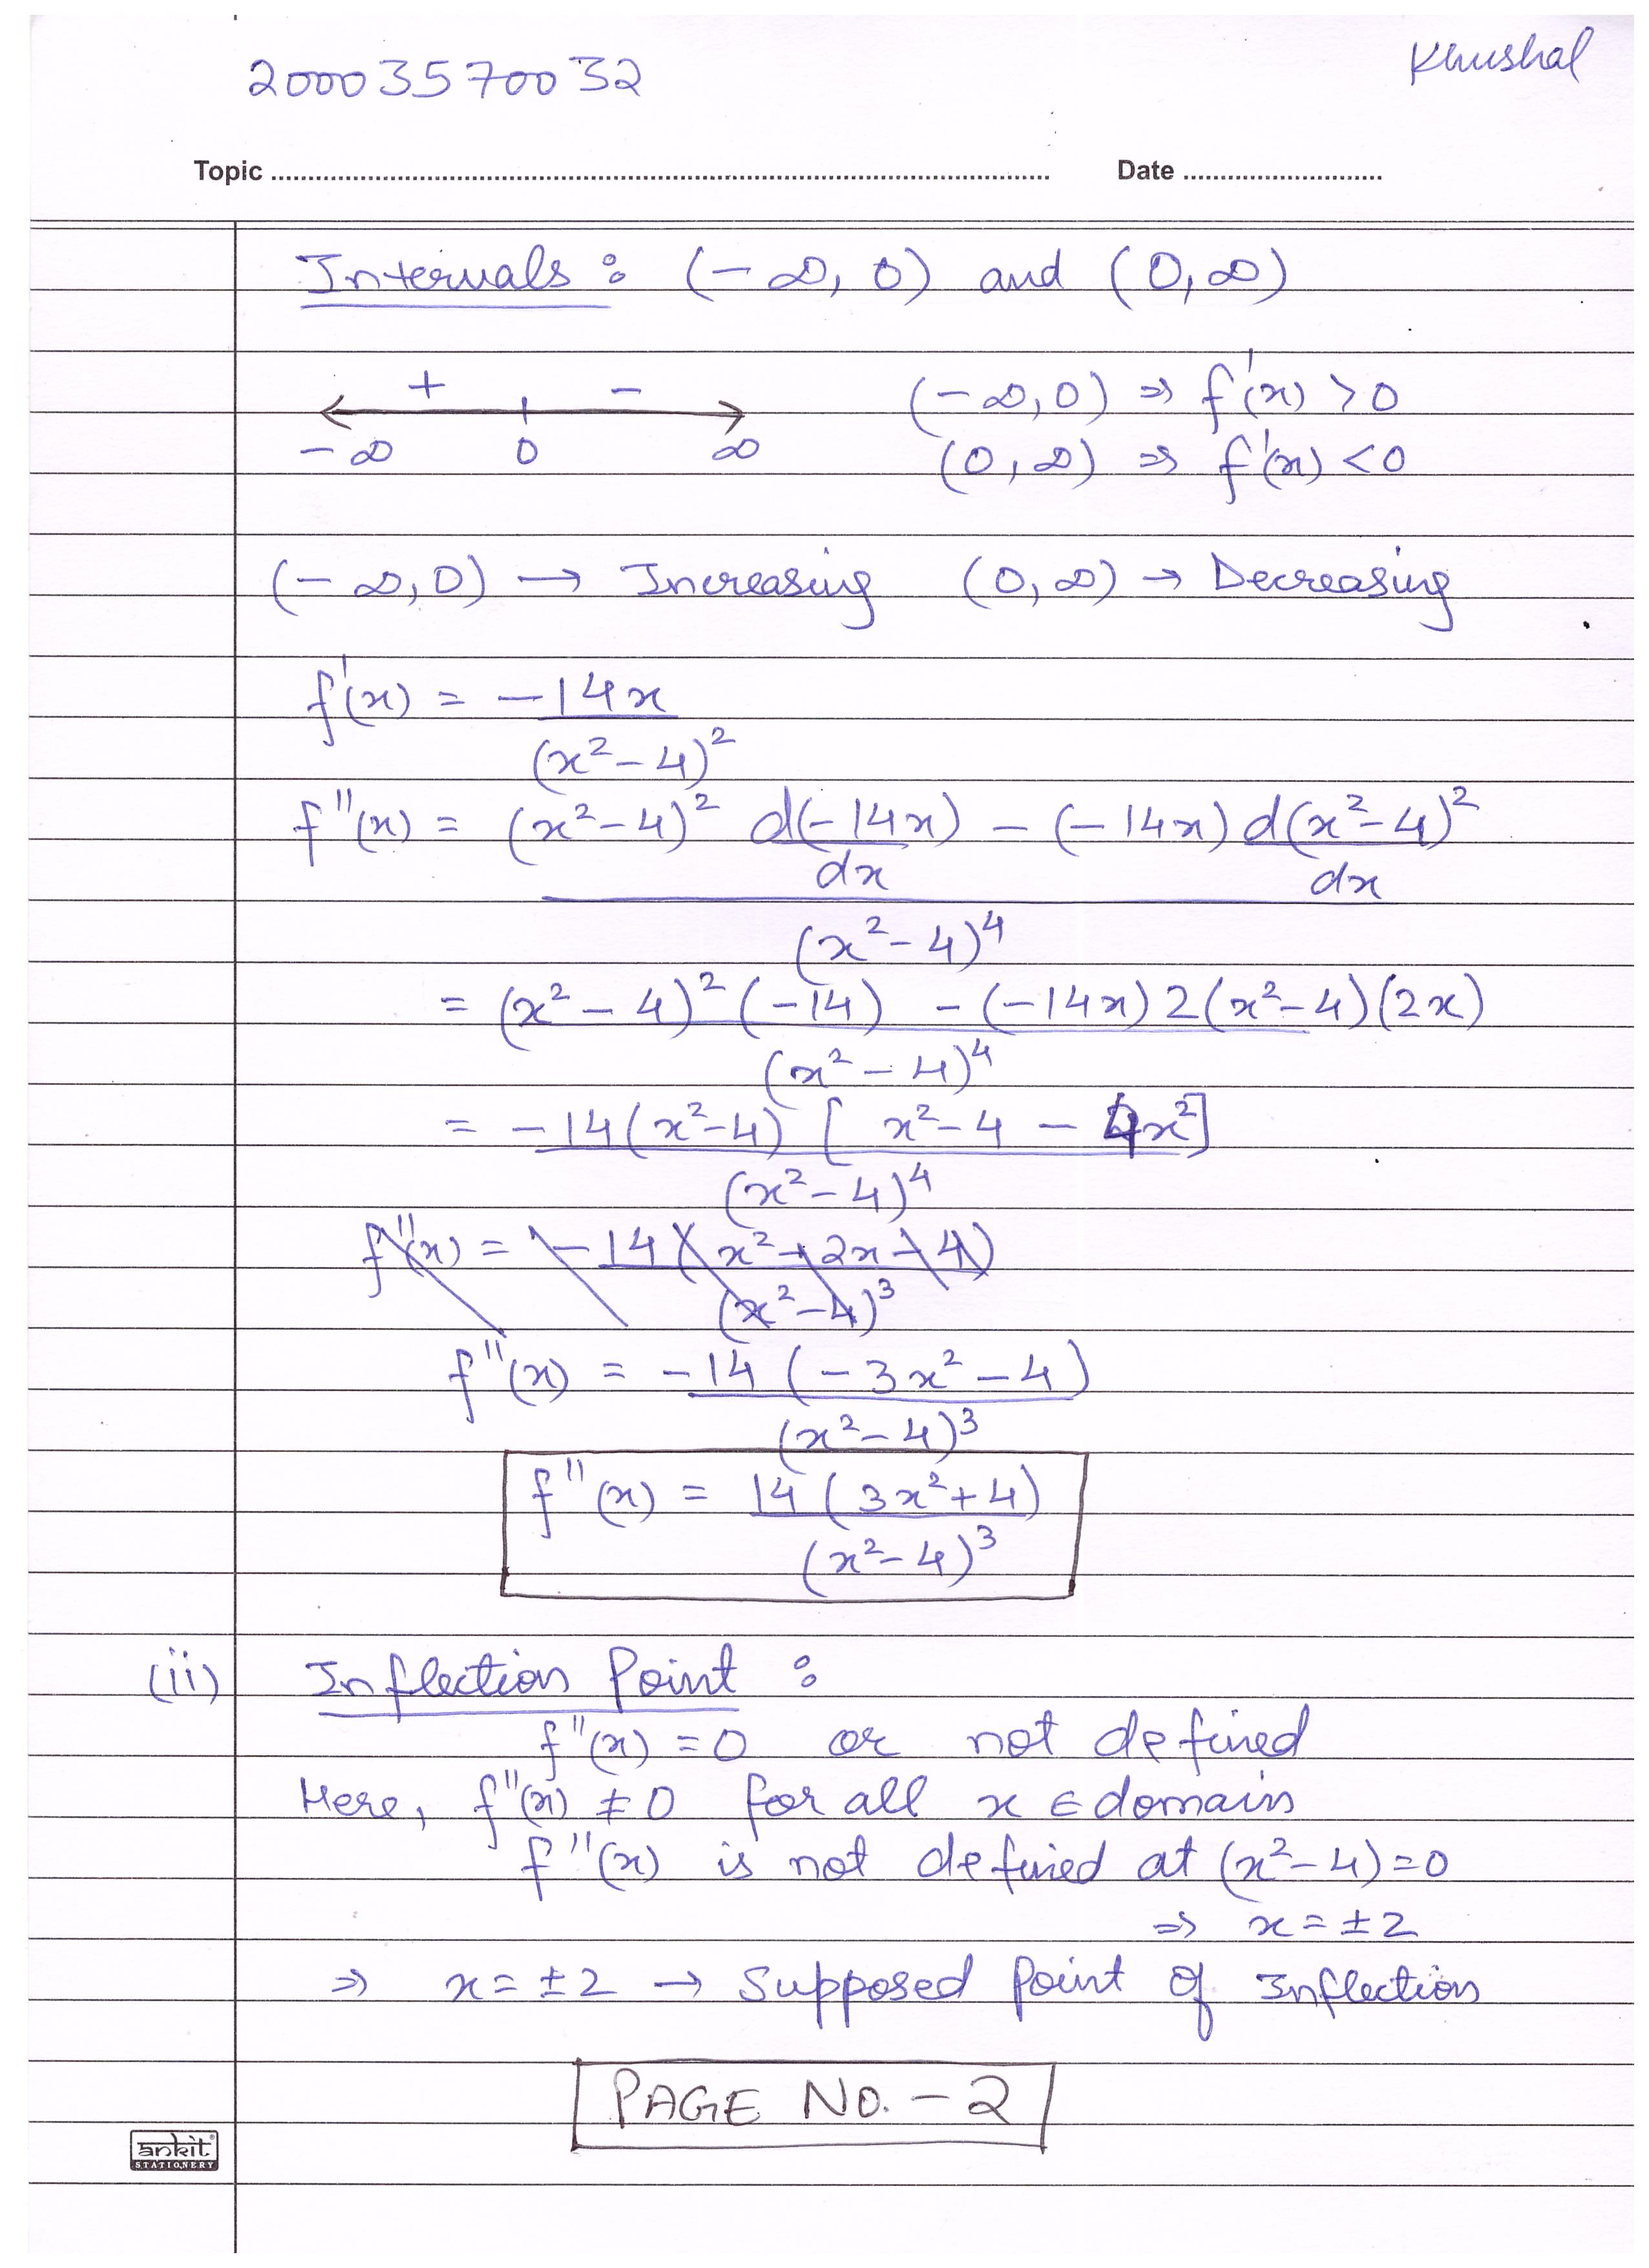 20003570032 Khushal
Topic ........................ Date ........................
Intervals : (-∞, 0) and (0, ∞)
+ - (-∞, 0) ⇒ f'(x) > 0
-∞ 0 ∞ (0, ∞) ⇒ f'(x) < 0
(-∞, 0) → Increasing (0, ∞) → Decreasing
f'(x) = -14x / (x²-4)²
f''(x) = (x²-4)² d(-14x)/dx - (-14x) d(x²-4)²/dx
(x²-4)⁴
= (x²-4)² (-14) - (-14x) 2(x²-4)(2x)
(x²-4)⁴
= -14(x²-4) [x²-4 - 4x²]
(x²-4)⁴
f''(x) = -14(x²+2x-4)
(x²-4)³
f''(x) = -14 (-3x²-4)
(x²-4)³
f''(x) = 14 (3x²+4)
(x²-4)³
(ii) Inflection Point :
f''(x) = 0 or not defined
Here, f''(x) ≠ 0 for all x ∈ domain
f''(x) is not defined at (x²-4)=0
⇒ x = ±2
⇒ x = ±2 → Supposed Point of Inflection
PAGE NO. - 2
ankit
STATIONERY